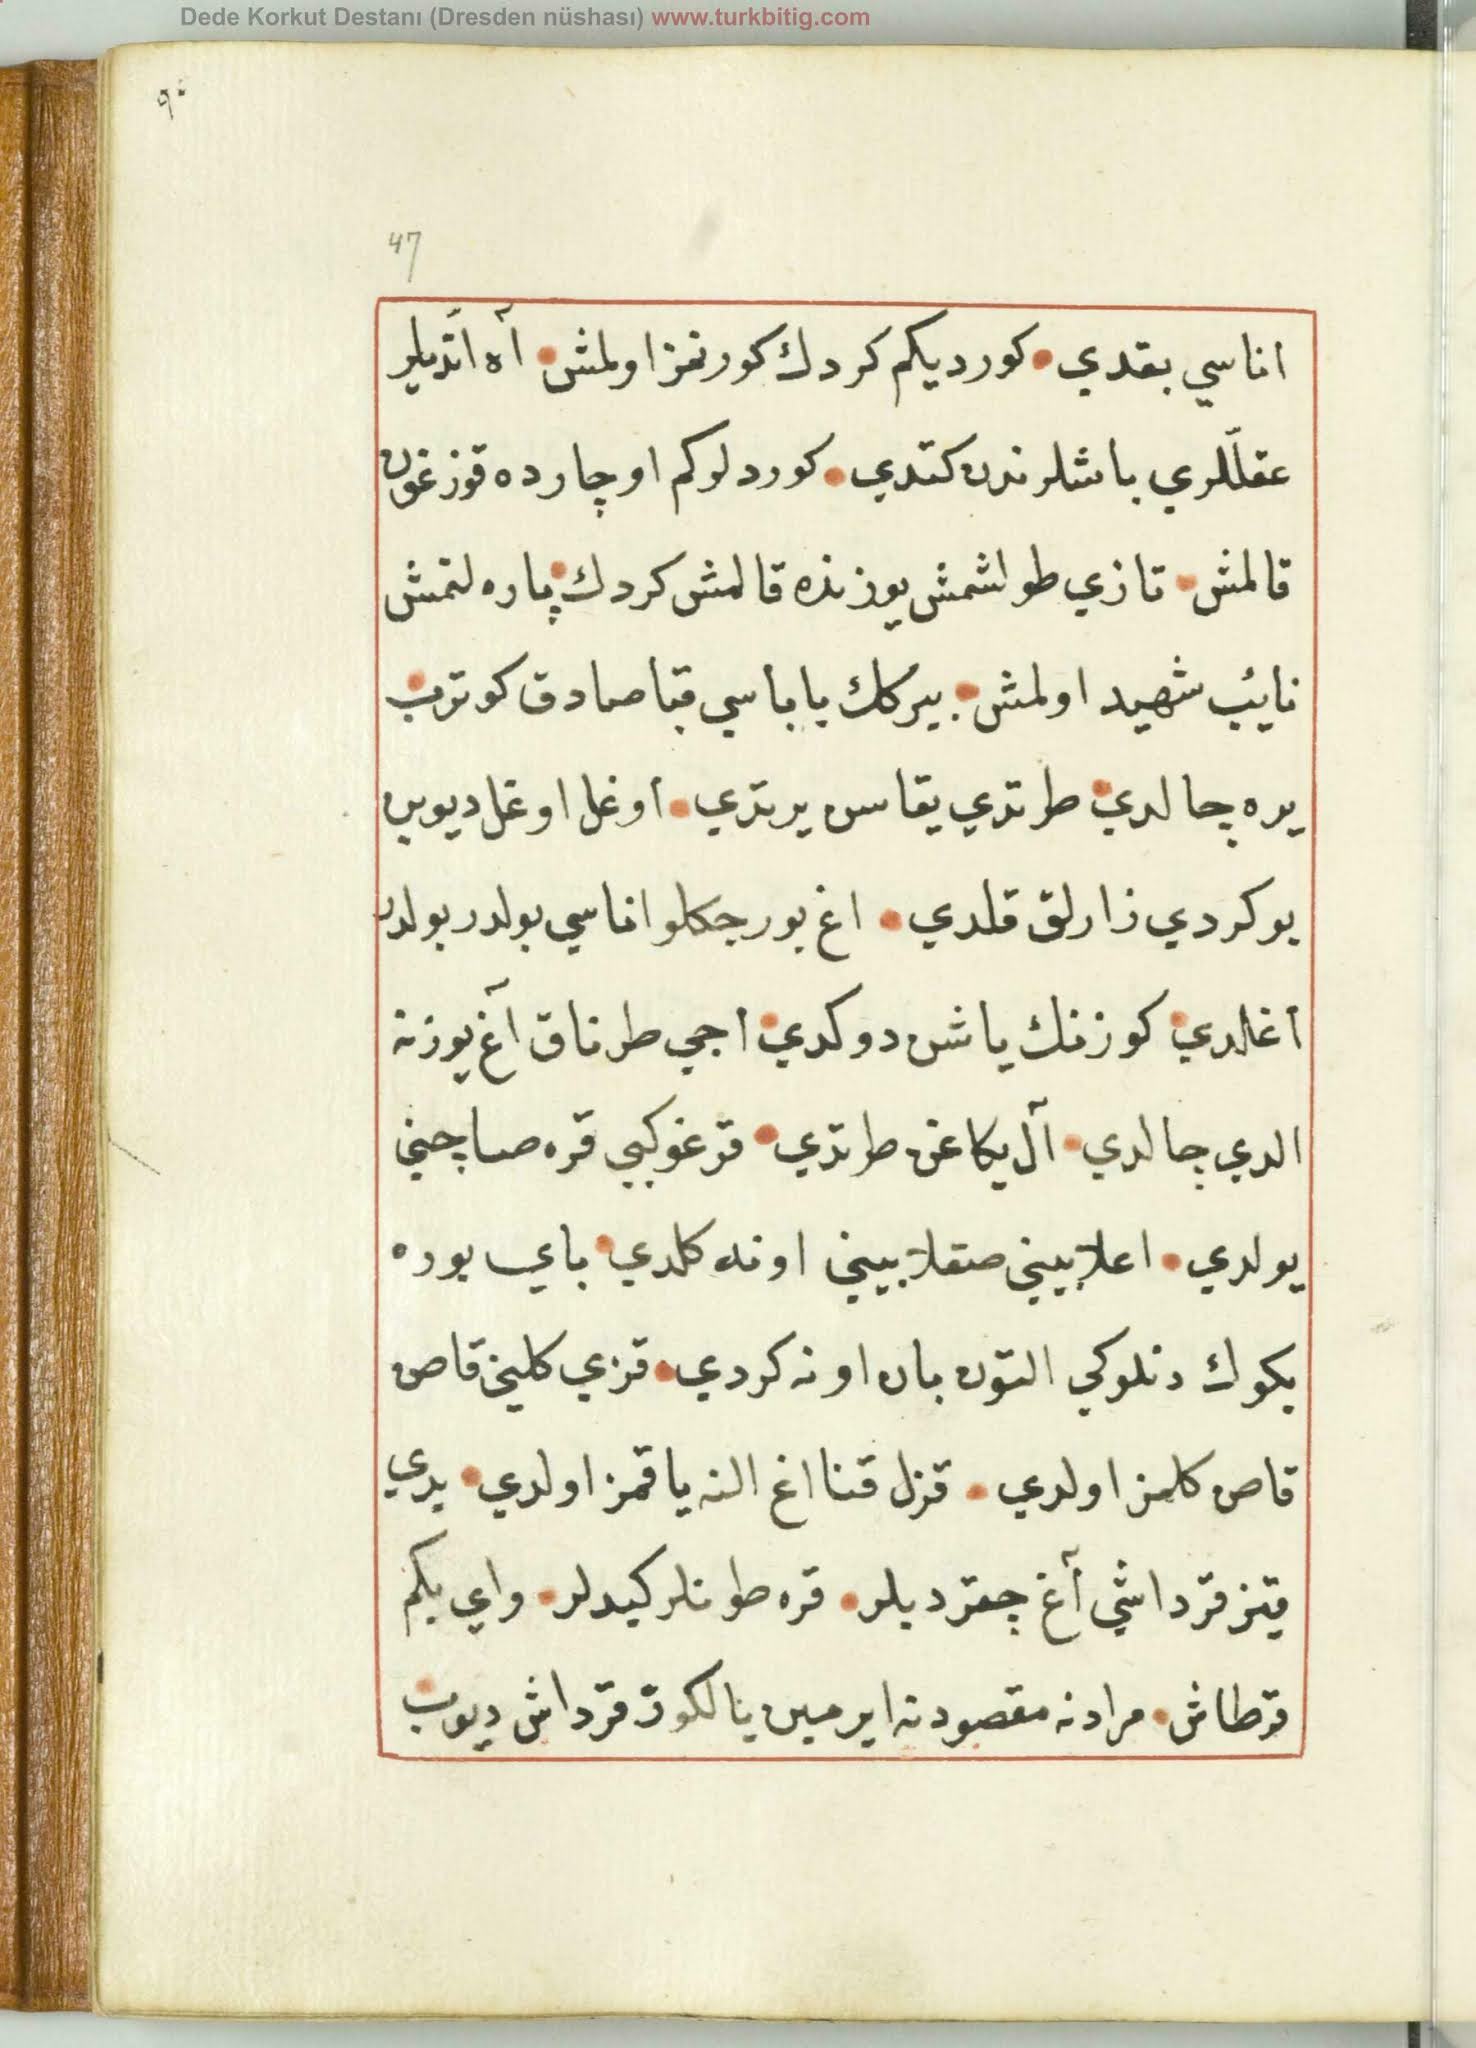 Dede Korkut Destanı (Dresden nüshası) www.turkbitig.com
٩٠
47
اناسي بقدي • كورديكم كردك كورنمز اولمش • آه اتديلر
عقللّري باشلرندن كتدي • كوردلركم اوچارده قوزغون
قالمش • تازي طولشمش يورندە قالمش كردك • پاره لنمش
نايب شهيد اولمش • بيرگك باباسي قبا صارق كوترب •
يره چالدي • طرتدي يقاسن يرتدي • اوغل اوغل ديوبن
بوكردي زارلق قلدي • اغ بورجكلو اناسي بولدر بولدر
اغلدي • كوزنك ياشن دوكدي • اجي طرناق آغ يوزنه
الدي چالدي • آل يكاغن طرتدي • قرغو كبي قره صاچني
يولدي • اعلابيني صقلابيني اونه كلدي • باي بوره
بكوك دنلوكي التون بان اونه كردي • قزي كليني قاص
قاص كلمز اولدي • قزل قنا اغ النه ياقمز اولدي • يدي
قيز قرداشي آغ چقرديلر • قره طونلر كيدلر • واي بكم
قرطاش • مرادنه مقصودنه ايرمين يالكوز قرداش ديوب •